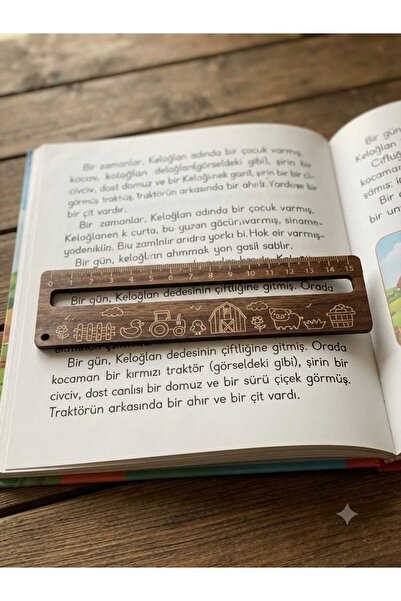 Bir zamanlar, Keloğlan adında bir çocuk varmış,
kocav, koloğlan deloğlan(görseldeki gibi), şirin bir
civciv, dost domuz ve bir
görmüş traktüş. Traktörün arkasında bir ahırlı.
bir çit vardır.
Bir zamanlar, Keloğlan adında bir çocuk varmış,
Keloğlanen k curta, bu yuzan göcürıvarmış, siname-
arıdra yorkı bi. Hok oır varmış-
Bir gün, keloğlan ahmmak yon gosil sablır.
0 1 2 3 4 5 6 7 8 9 10 11 12 13 14 15
Bir gün, Keloğlan dedesinin çiftliğine gitmiş. Orada
Bir gün, Keloğlan dedesinin çiftliğine gitmiş. Orada
kocaman bir kırmızı traktör (görseldeki gibi), şirin bir
civciv, dost canlısı bir domuz ve bir sürü çiçek görmüş.
Traktörün arkasında bir ahır ve bir çit vardı.
Bir gün
Keloğlan
Çiftliğ
kocaman